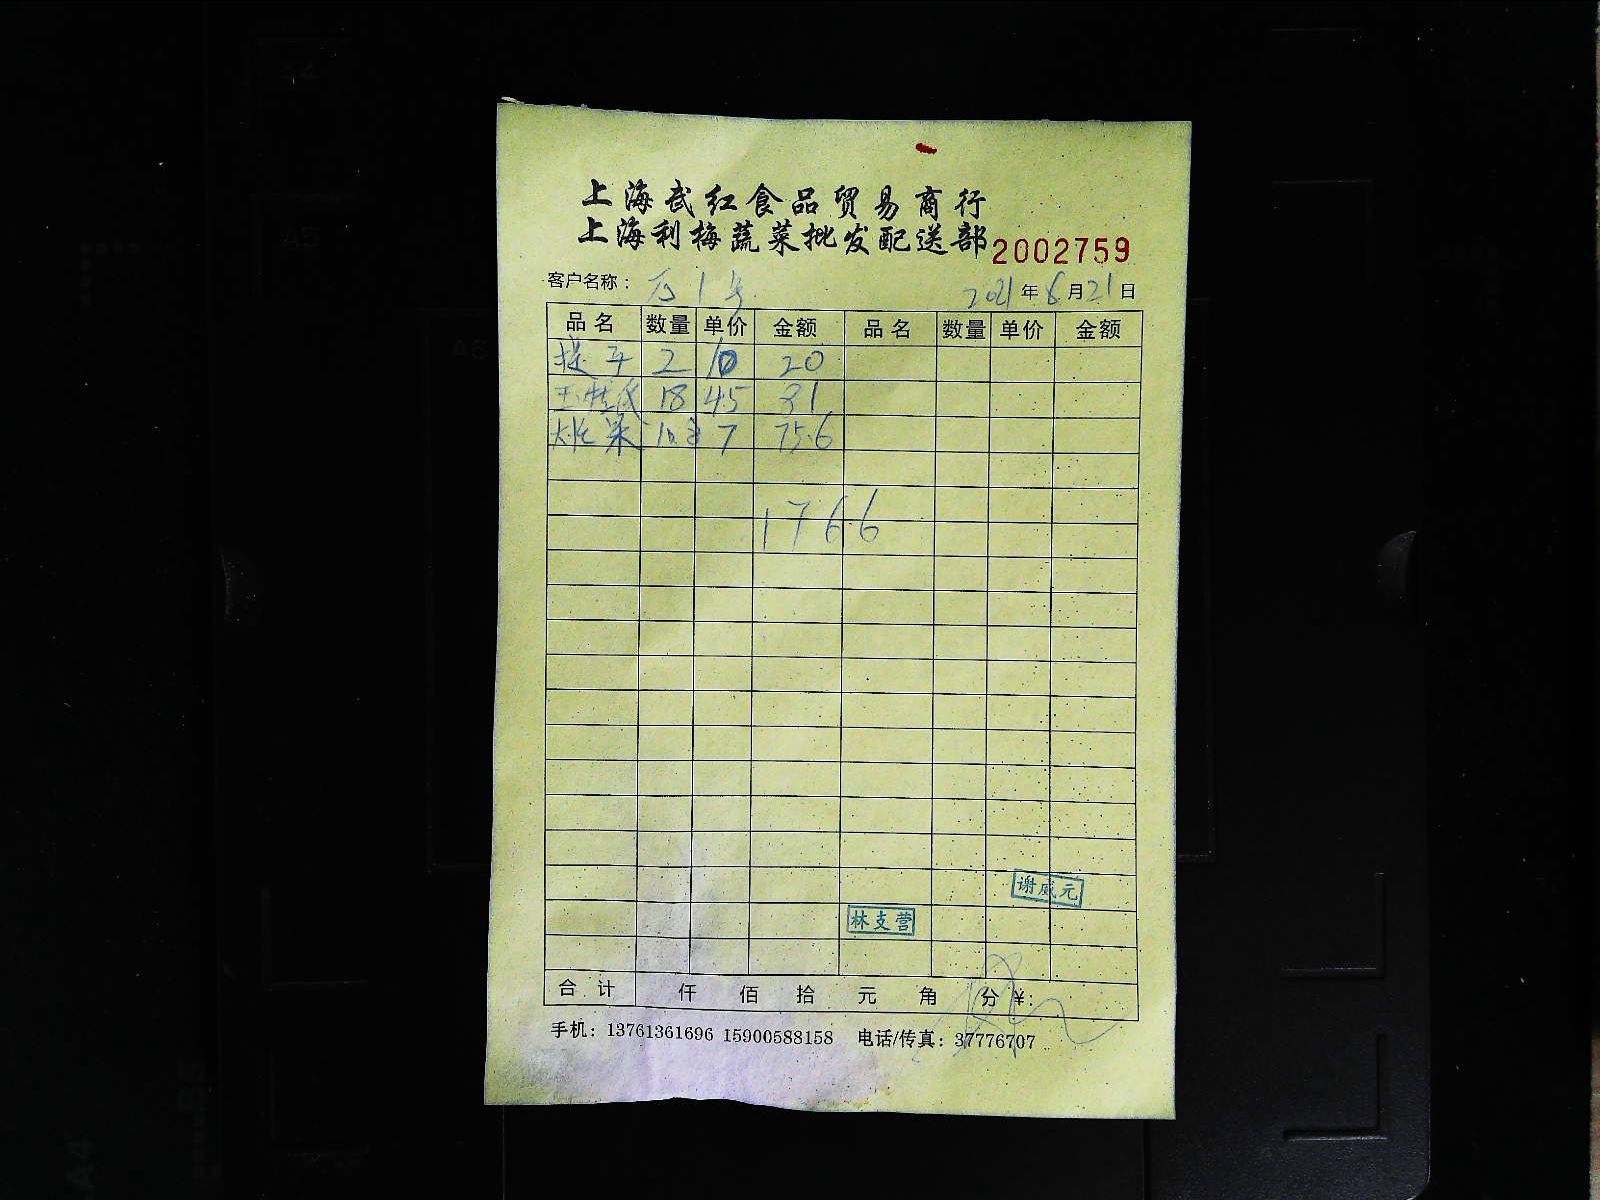 上海武红食品贸易商行
上海利梅蔬菜批发配送部 2002759
客户名称： 1号 2021年6月21日
品名 数量 单价 金额 品名 数量 单价 金额
2 10 20
18 4.5 81
菜 10.8 7 75.6
176.6
谢威元
林支营
合计 仟 佰 拾 元 角 分 ¥:
手机：13761361696 15900588158 电话/传真：37776707